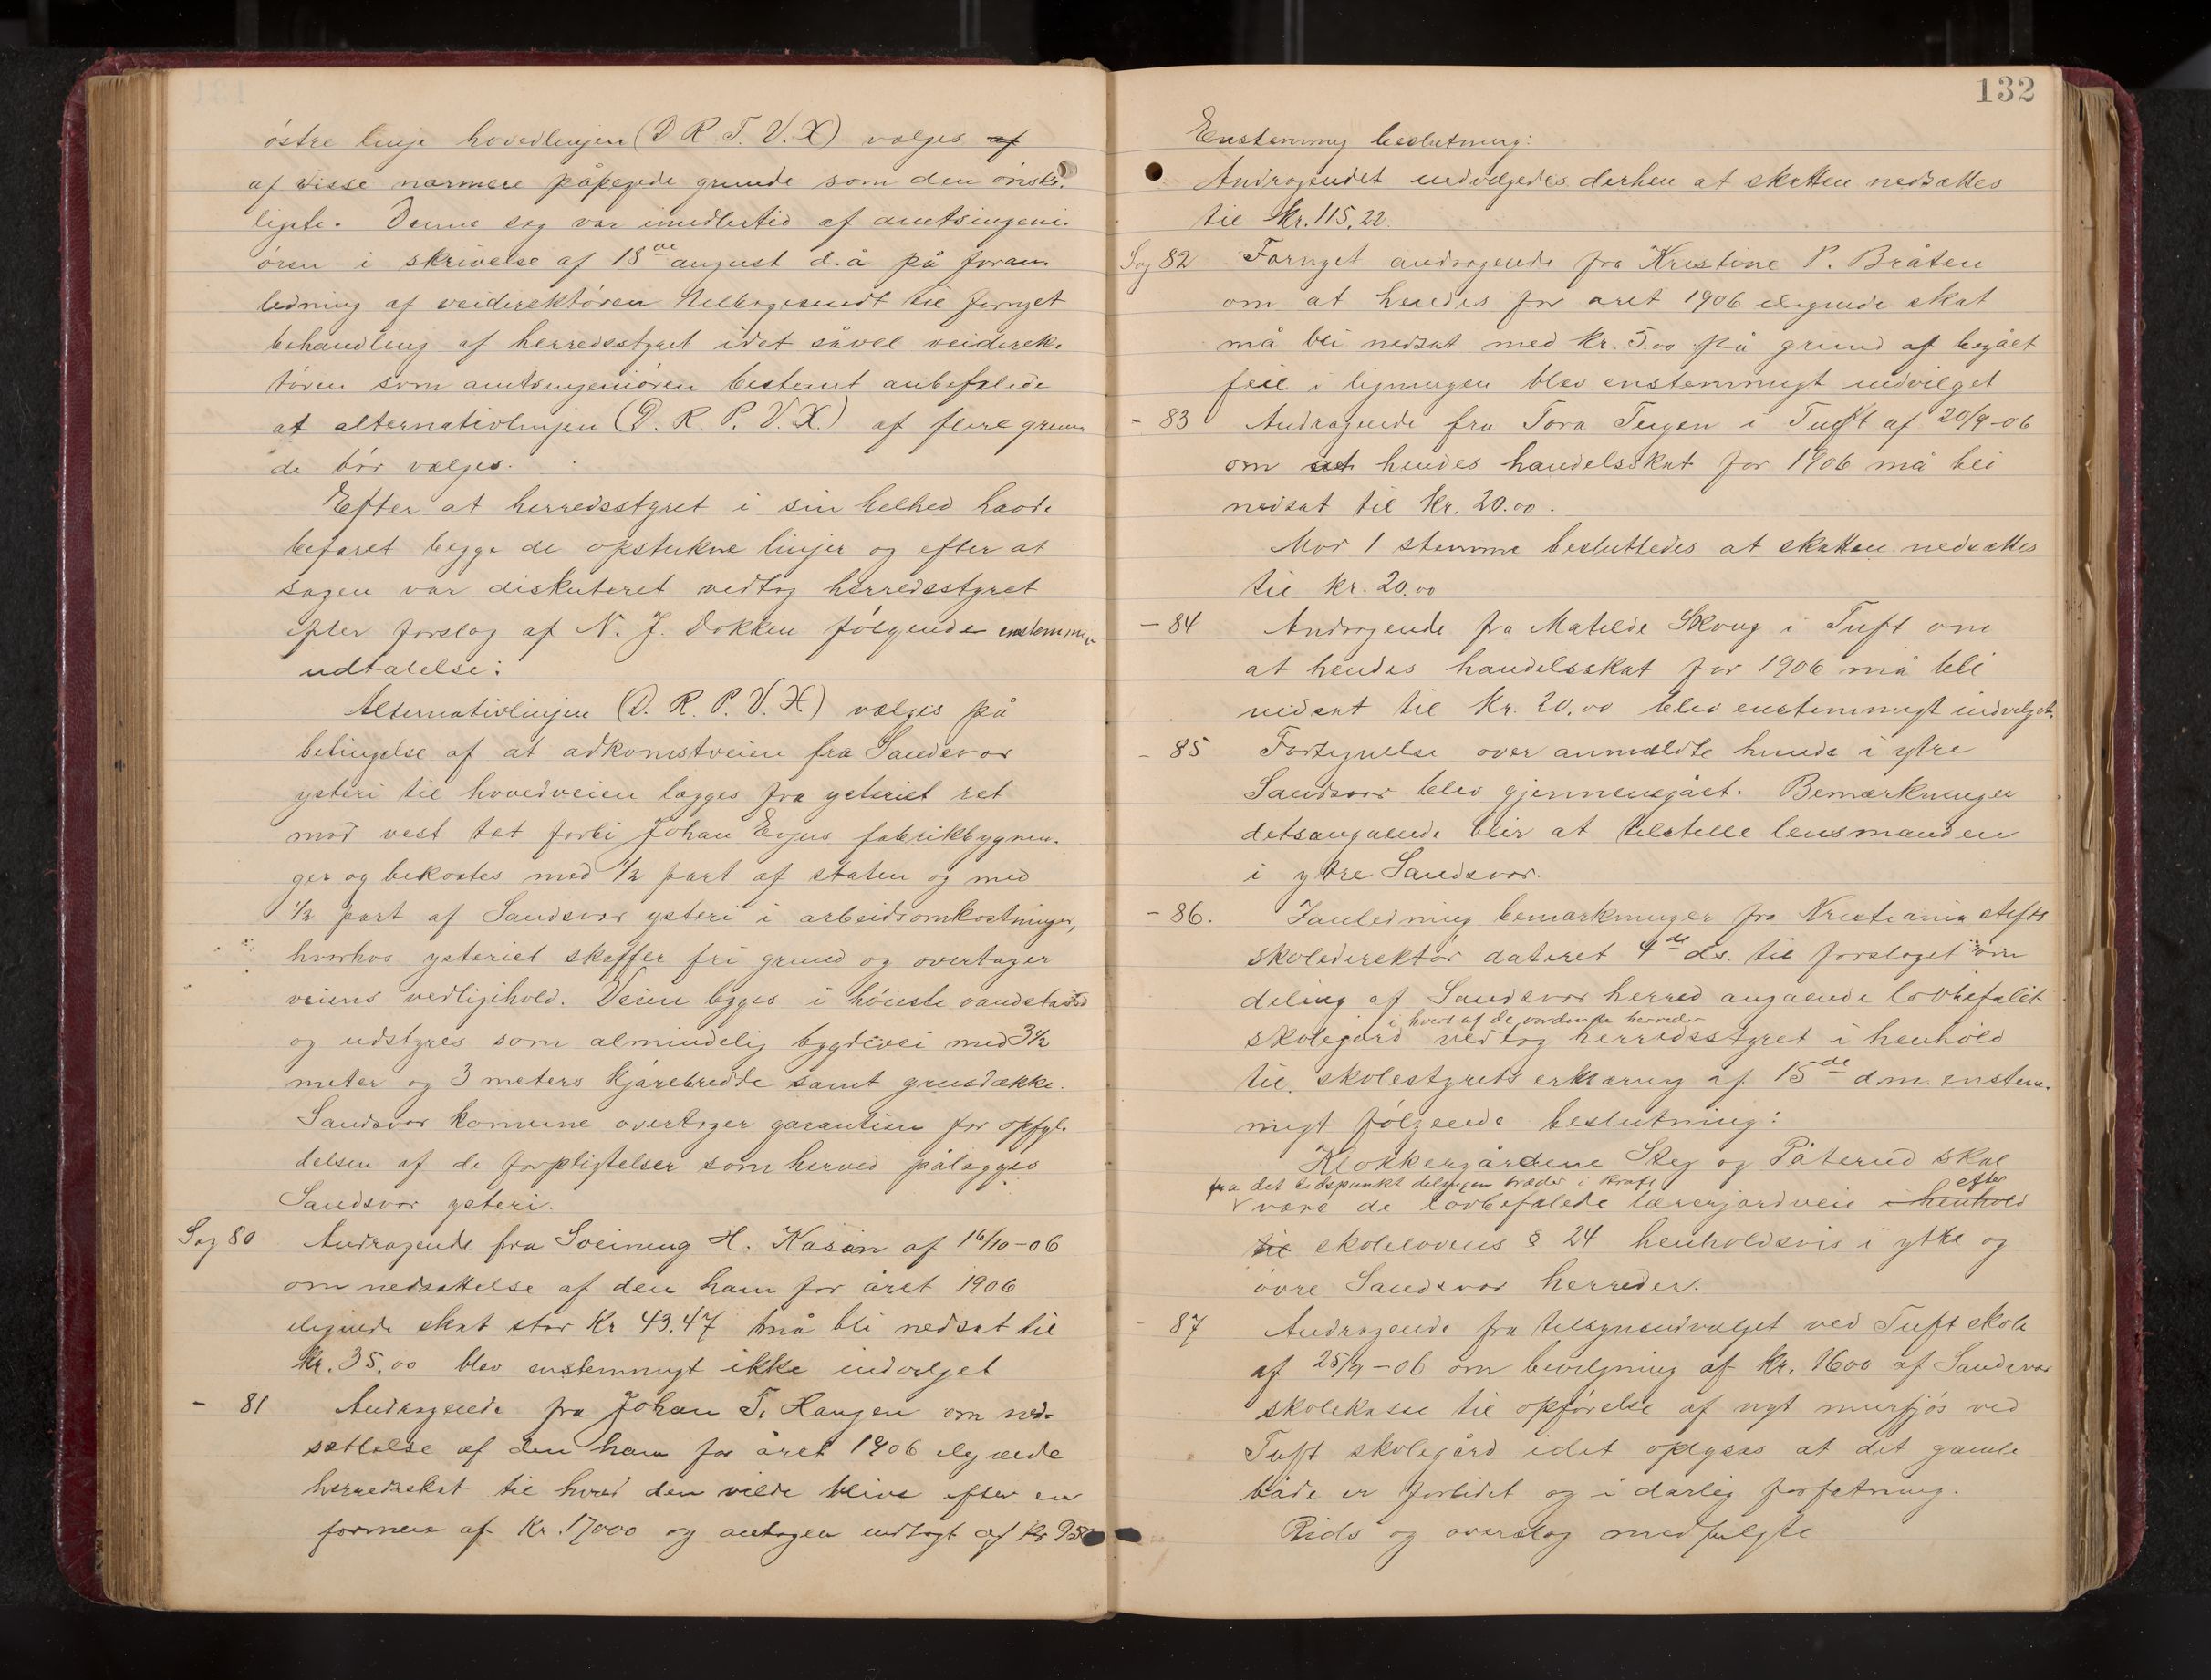 østre linje hovedlinjen (D R. T. V. X) vælges af
af disse nærmere påpegede grunde som den ønske-
ligste. Denne sag var imidlertid af amtsingeni-
øren i skrivelse af 18de august d.å på foran-
ledning af veidirektøren tilbagesendt til fornyet
behandling af herredsstyret idet såvel veidirek-
tøren som amtsingeniøren bestemt anbefalede
at alternativlinjen (D. R. P. V. X.) af flere grun-
de bør vælges.
Efter at herredsstyret i sin helhed havde
befaret begge de opstukne linjer og efter at
sagen var diskuteret vedtog herredsstyret
efter forslag af N. J. Dokken følgende enstemmig
udtalelse:
Alternativlinjen (D. R. P. V. X) vælges på
betingelse af at adkomstveien fra Sandsvær
ysteri til hovedveien lægges fra ysteriet ret
mod vest tæt forbi Johan Evjus fabrikbygnin-
ger og bekostes med 1/2 part af staten og med
1/2 part af Sandsvær ysteri i arbeidsomkostninger,
hvorhos ysteriet skaffer fri grund og overtager
veiens vedligehold. Veien bygges i høieste vandstand
og udstyres som almindelig bygdevei med 3 1/2
meter og 3 meters kjørebredde samt grusdække.
Sandsvær komune overtager garantien for opfyl-
delsen af de forpligtelser som herved pålægges
Sandsvær ysteri.
Sag 80 Andragende fra Sveinung H. Kasin af 16/10-06
om nedsættelse af den ham for året 1906
ilignede skat stor Kr 43.47 må bli nedsat til
Kr. 35.00 blev enstemmigt ikke indvilget
- 81 Andragende fra Johan T. Haugen om ned-
sættelse af den ham for året 1906 ilignede
herredsskat til hvad den vilde blive efter en
formue af Kr. 17000 og antagen indtægt af Kr 950
132
Enstemmig beslutning:
Andragendet indvilgedes derhen at skatten nedsættes
til Kr. 115,22.
Sag 82 Fornyet andragende fra Kristine P. Bråten
om at hendes for året 1906 ilignede skat
må bli nedsat med Kr. 5.00 på grund af begået
feil i ligningen blev enstemmigt indvilget
- 83 Andragende fra Tora Teigen i Tuft af 20/9-06
om at hendes handelsskat for 1906 må bli
nedsat til Kr. 20.00.
Mod 1 stemme besluttedes at skatten nedsættes
til Kr. 20.00
- 84 Andragende fra Matilde Skoug i Tuft om
at hendes handelsskat for 1906 må bli
nedsat til Kr. 20.00 blev enstemmigt indvilget.
- 85 Fortegnelse over anmældte hunde i ytre
Sandsvær blev gjennemgået. Bemærkninger
detsangaaende blir at tilstille lensmanden
i ytre Sandsvær.
- 86. I anledning bemærkninger fra Kristiania stifts
skoledirektør dateret 4de ds. til forslaget om
deling af Sandsvær herred angaaende lovbefalet
i hvert af de vordende herreder
skolejord vedtog herredsstyret i henhold
til skolestyrets erklæring af 15de d.m. enstem-
migt følgende beslutning:
Klokkergårdene Steg og Påterud skal
fra det tidspunkt delingen træder i kraft
være de lovbefalede lærerjordveie i henhold efter
til skolelovens § 24 henholdsvis i ytre og
øvre Sandsvær herreder.
- 87 Andragende fra tilsynsudvalget ved Tuft skole
af 25/9-06 om bevilgning af Kr. 1600 af Sandsvær
skolekasse til opførelse af nyt murfjøs ved
Tuft skolegård idet oplyses at det gamle
både er forlidet og i dårlig forfatning.
Rids og overslag medfulgte